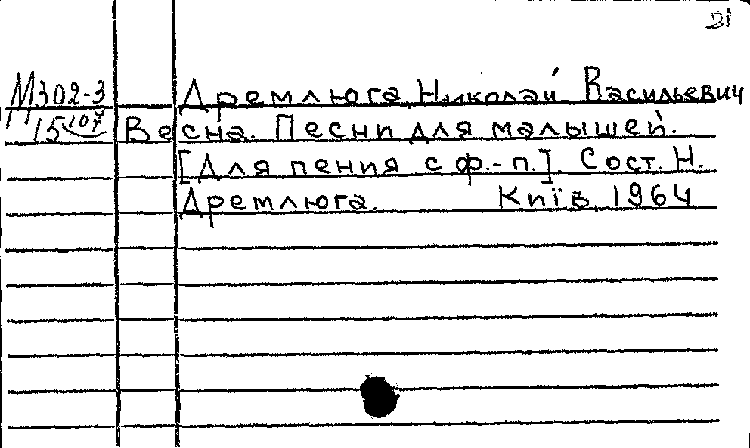 М302-3 Дремлюга, Николай Васильевич
15107 Весна. Песни для малышей.
[Для пения с ф.-п.]. Сост. Н.
Дремлюга. Київ, 1964